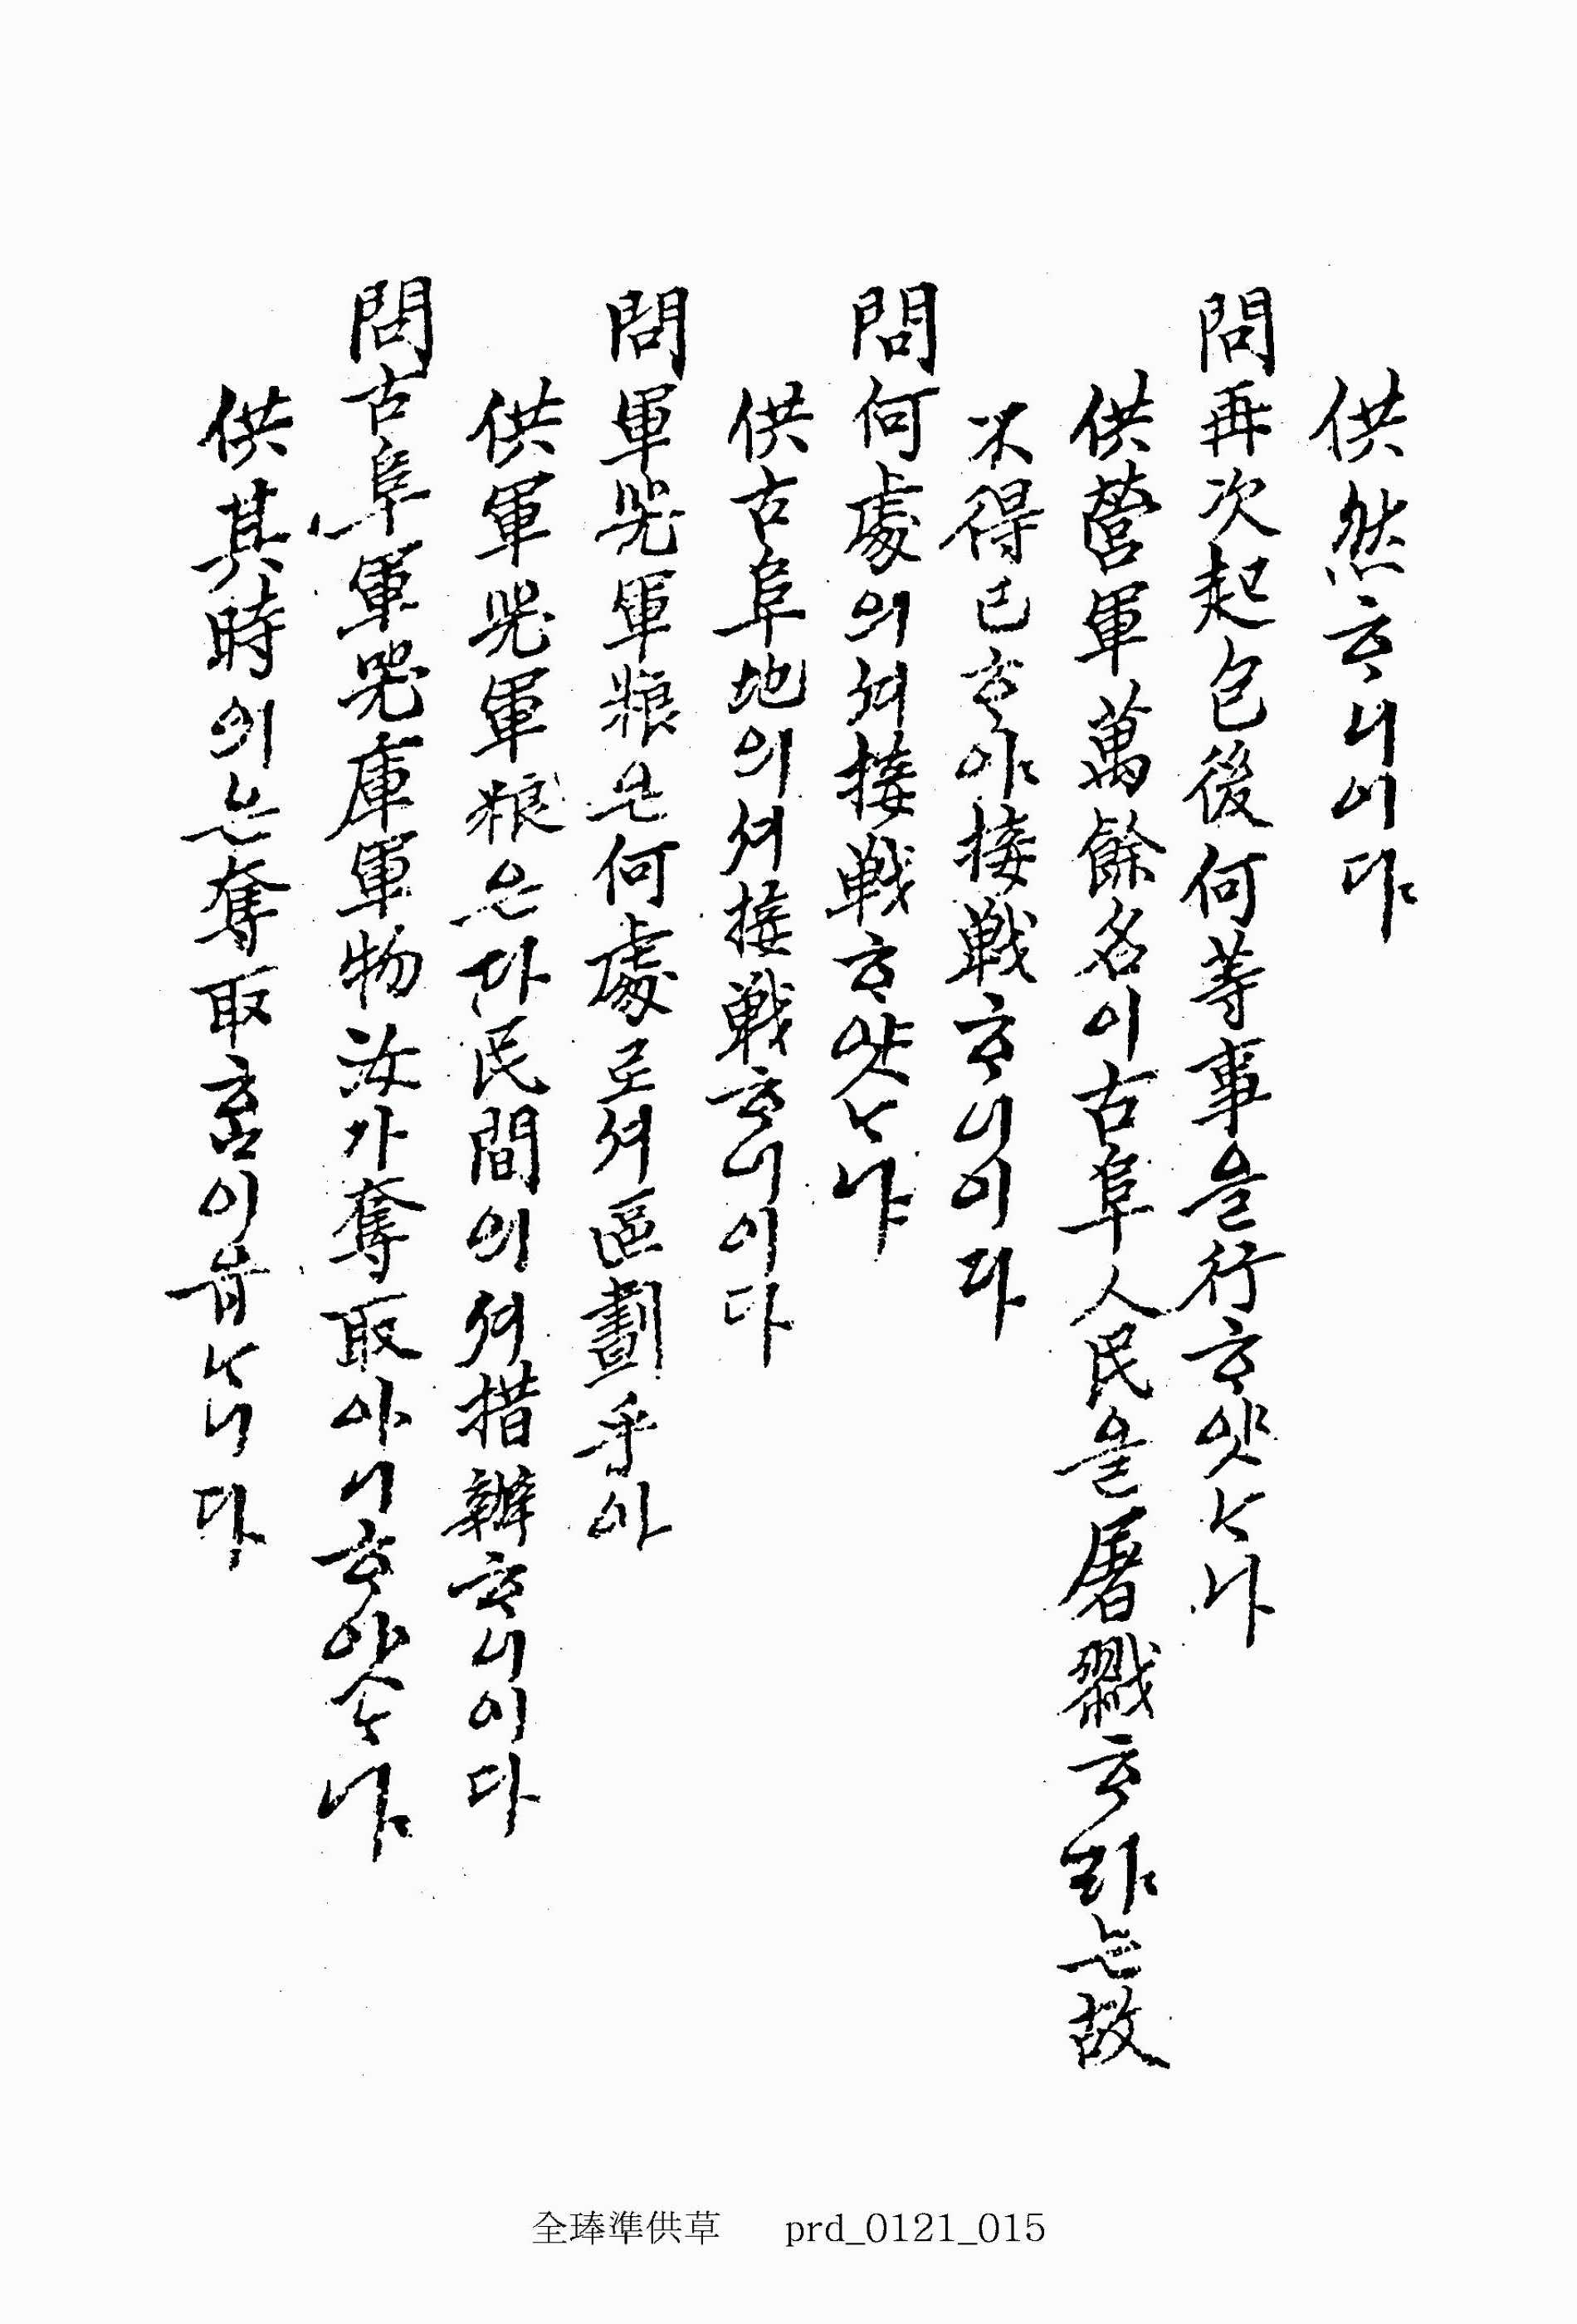 供然ᄒᆞ니이다
問再次起包後何等事을行ᄒᆞ얏ᄂᆞ냐
供營軍萬餘名이古阜人民을屠戮ᄒᆞ랴는故
不得已ᄒᆞ야接戰ᄒᆞ니이다
問何處의셔接戰ᄒᆞ얏ᄂᆞ냐
供古阜地의셔接戰ᄒᆞ니이다
問軍器軍粮은何處로셔區劃乎아
供軍器軍粮은다民間의셔措辦ᄒᆞ니이다
問古阜軍器庫軍物汝가奪取아니ᄒᆞ얏ᄂᆞ냐
供其時의는奪取홈이읍ᄂᆞ니다
全琫準供草 prd_0121_015